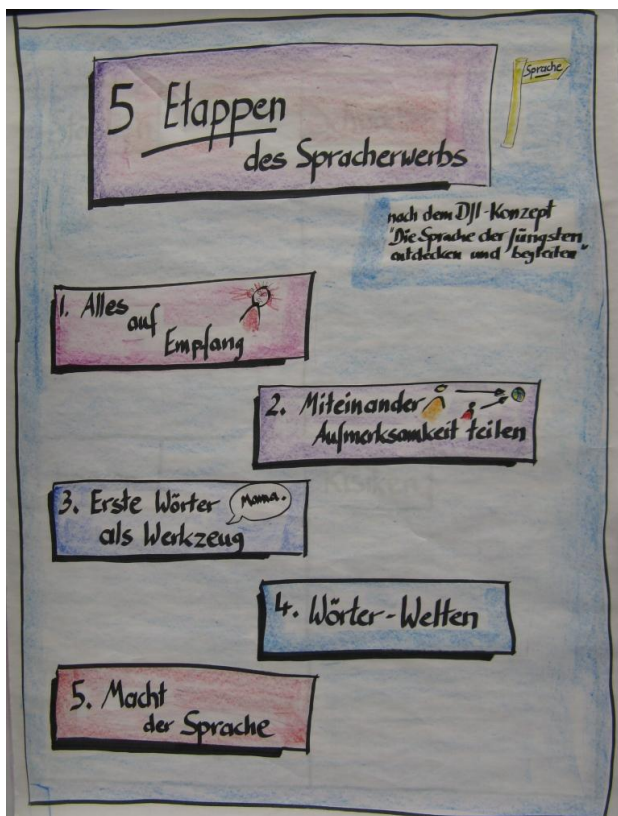 5 Etappen
des Spracherwerbs
Sprache
nach dem DJI-Konzept
"Die Sprache der Jüngsten
entdecken und begleiten"
1. Alles
auf
Empfang
2. Miteinander
Aufmerksamkeit teilen
3. Erste Wörter
als Werkzeug
Mama.
4. Wörter-Welten
5. Macht
der Sprache